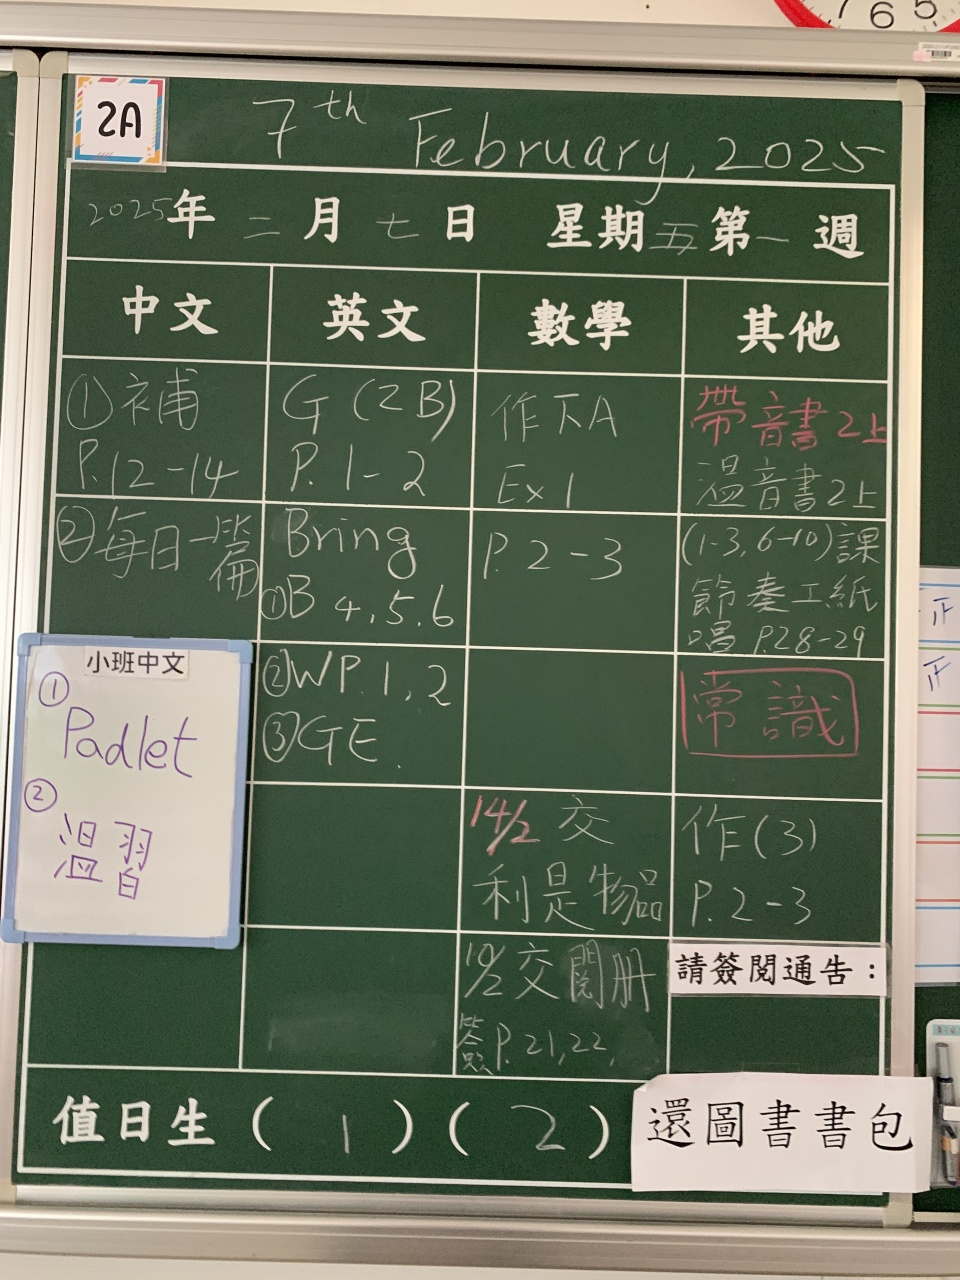 2A
7th February, 2025
2025年 二 月 七 日 星期 五 第 一 週
中文 英文 數學 其他
①補
P.12-14
②每日一篇
小班中文
①
Padlet
②
溫習
G (2B)
P. 1-2
Bring
①B 4,5,6
②WP. 1,2
③GE.
作下A
Ex 1
P.2-3
14/2 交
利是物品
10/2 交閱册
簽P.21,22,
帶音書2上
溫音書2上
(1-3,6-10)課
節奏工紙
唱 P.28-29
常識
作(3)
P.2-3
請簽閱通告：
值日生( 1 )( 2 )
還圖書書包
7 6 5
正
正